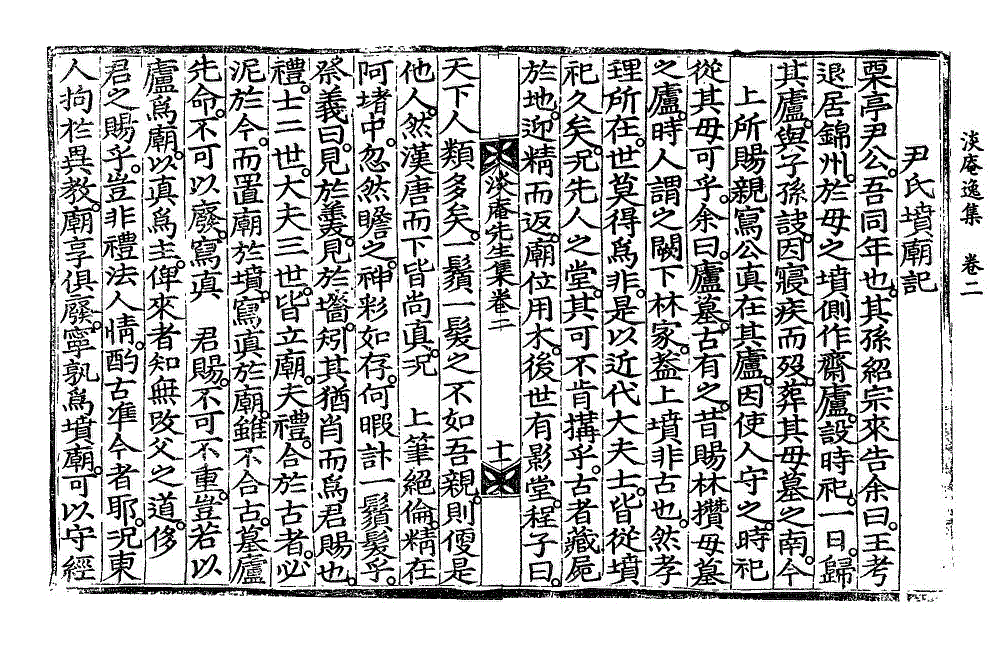 淡庵逸集 卷二
尹氏墳廟記
栗亭尹公。吾同年也。其孫紹宗來告余曰。王考
退居錦州。於母之墳側作齋廬。設時祀。一日。歸
其廬。與子孫訣。因寢疾而歿。葬其母墓之南。今
上所賜親寫公眞在其廬。因使人守之。時祀
從其母可乎。余曰。廬墓。古有之。昔賜林攢母墓
之廬。時人謂之闕下林家。盖上墳非古也。然孝
理所在。世莫得爲非。是以近代大夫士。皆從墳
祀久矣。况先人之堂。其可不肯搆乎。古者藏屍
於地。迎精而返。廟位用木。後世有影堂。程子曰。
淡庵先生集卷二 十
天下人類多矣。一鬚一髮之不如吾親。則便是
他人。然漢唐而下皆尚眞。况 上筆絕倫。精在
阿堵中。忽然瞻之。神彩如存。何暇計一鬚髮乎。
祭義曰。見於羹。見於墻。矧其猶肖而爲君賜也。
禮。士二世。大夫三世。皆立廟。夫禮。合於古者。必
泥於今。而置廟於墳。寫眞於廟。雖不合古。墓廬
先命。不可以廢。寫眞 君賜。不可不重。豈若以
廬爲廟。以眞爲主。俾來者知無改父之道。侈
君之賜乎。豈非禮法人情。酌古准今者耶。况東
人拘於異敎。廟享俱廢。寧孰爲墳廟。可以守經